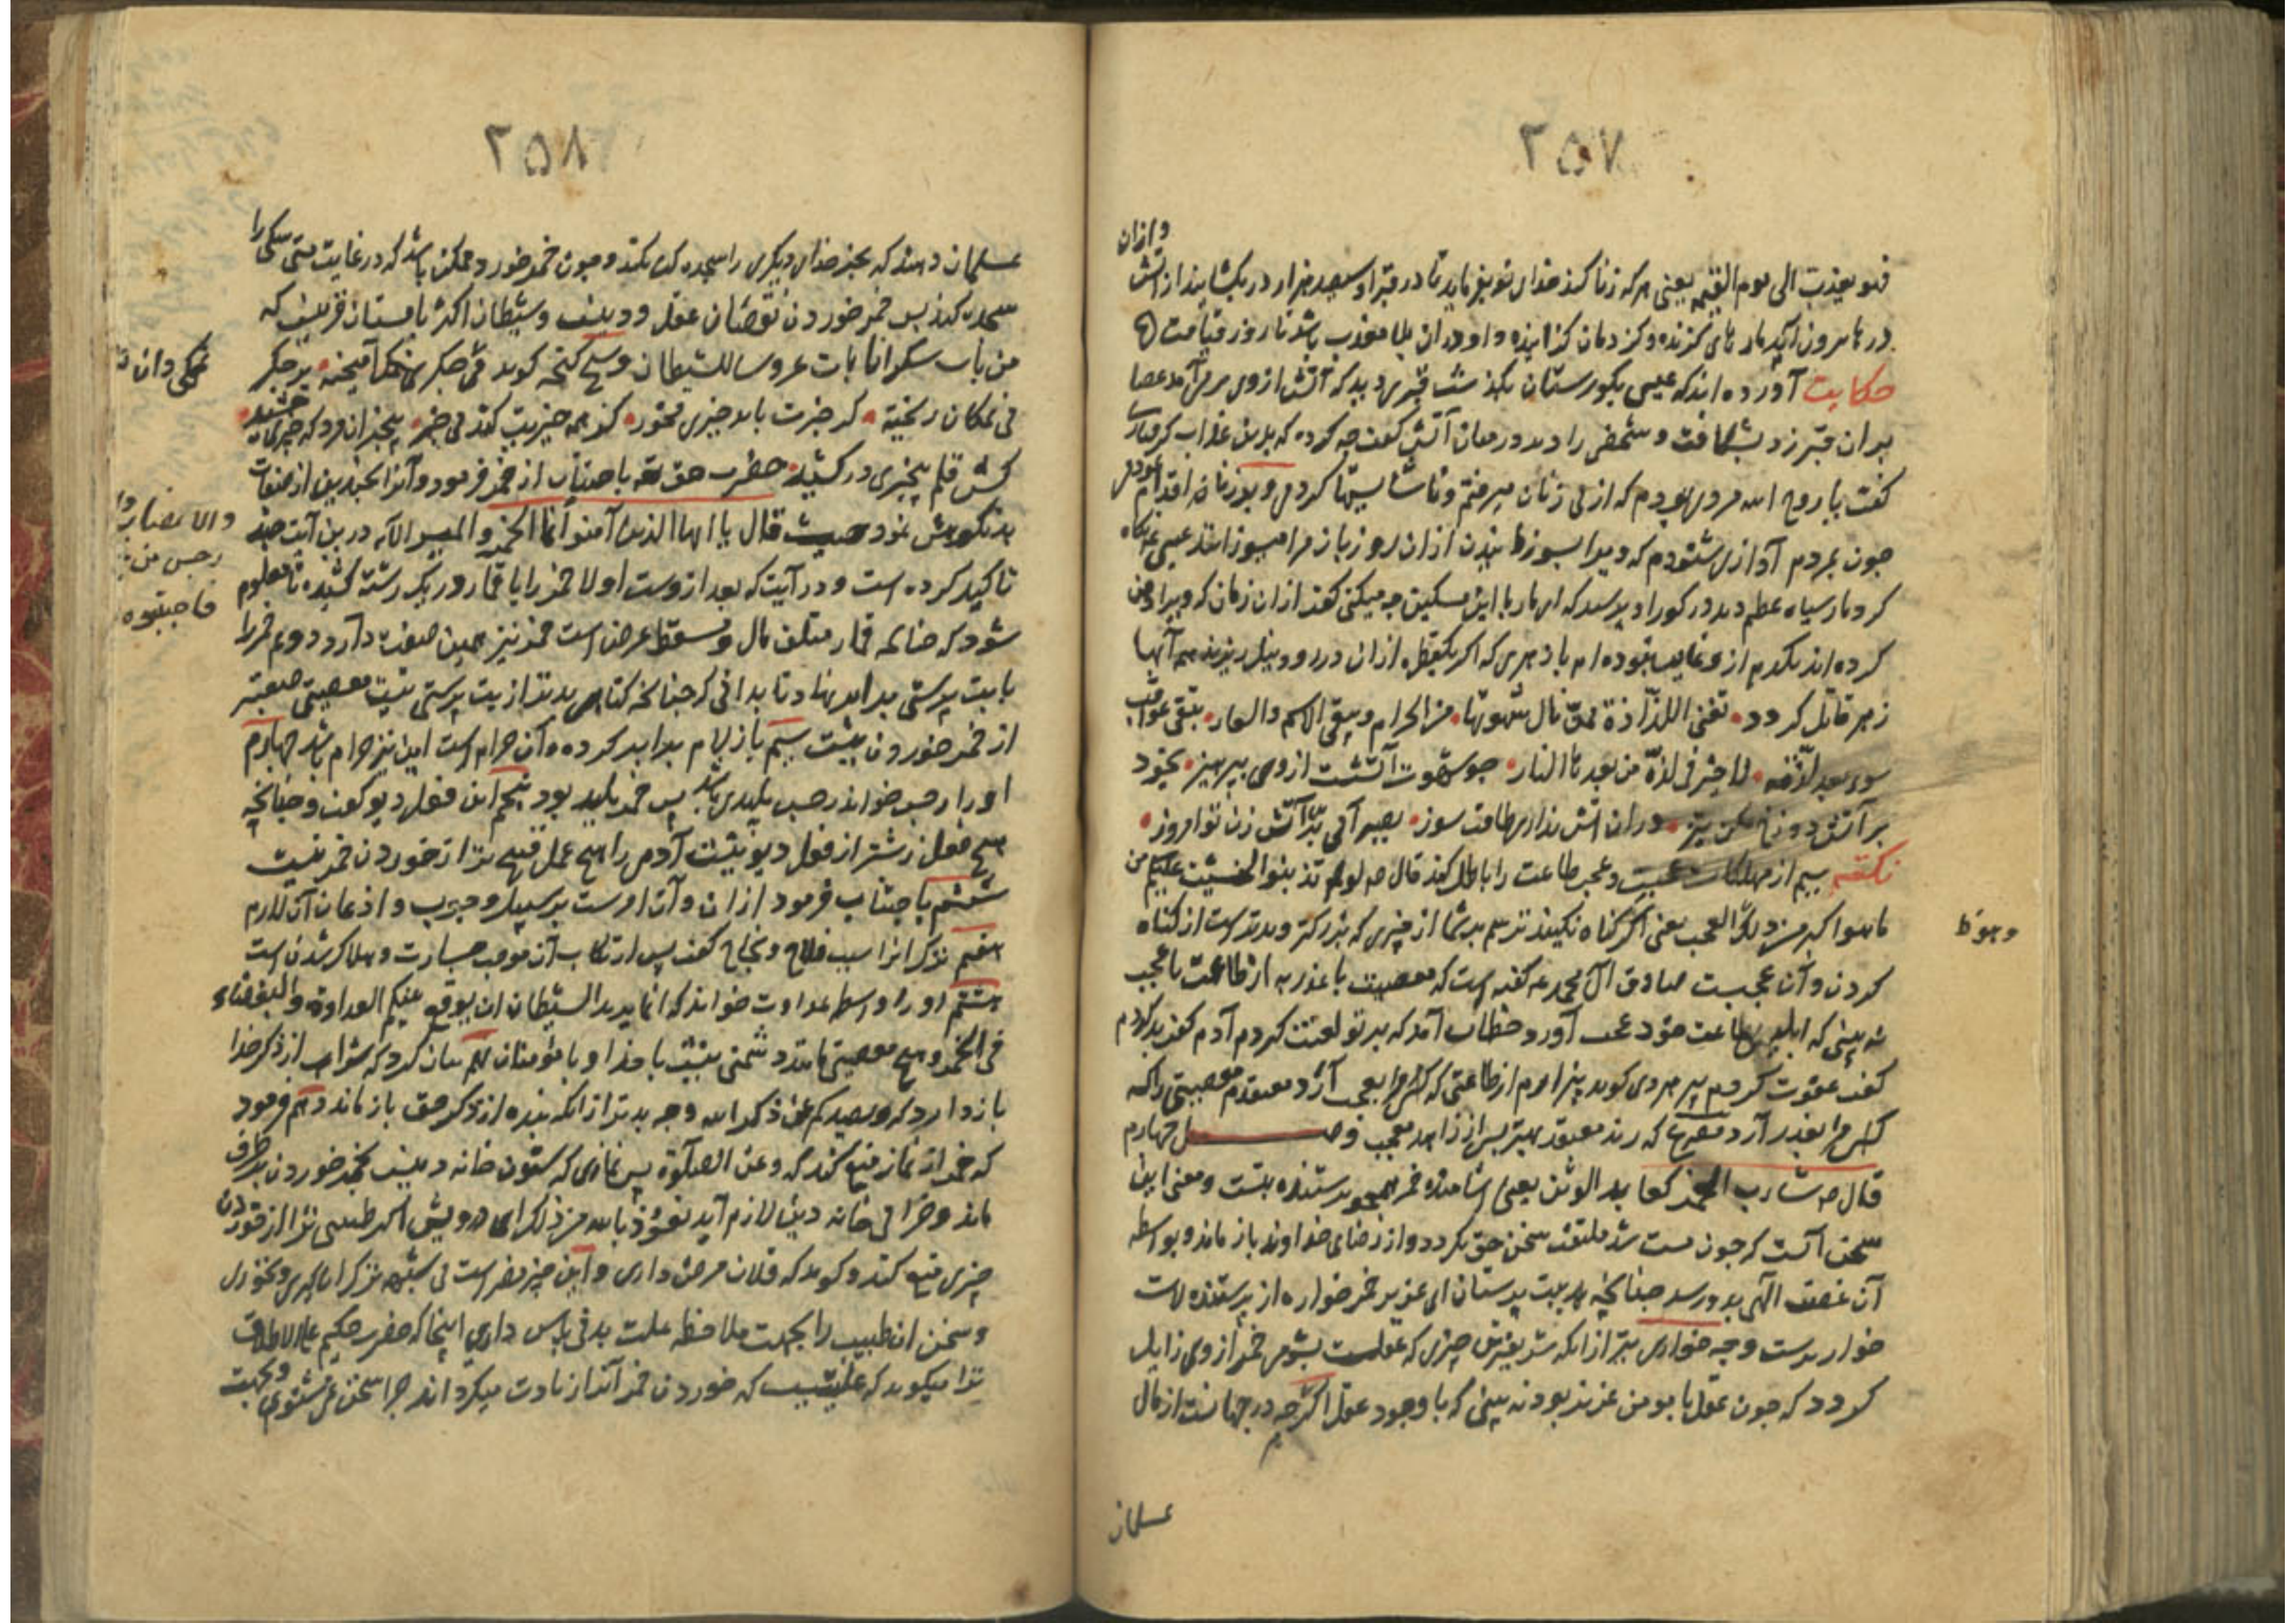 ۲۵۷
وازان
فهو یعذب الی یوم القیمه یعنی هر که زنا کند خدای تو بفرماید تا در قبر او سیصد هزار در بکشایند از آتش
در ها بیرون آید مار های گزنده و کزدمان و او دران بلا معذب باشد تا روز قیامت
حکایت آورده اند که عیسی بکورستان بگذشت قبری دید که آتش از وی بر می آمد عصا
بران قبر زد بشکافت و شخصی را دید در میان آتش گفت چه کرده که بدین عذاب گرفتاری
گفت یا روح الله مردی بودم که از پی زنان میرفتم و ناشایستها کردمی و بر زنا اقدام نمودمی
چون بمردم آوازی شنودم که ویرا بسوزید ازان روز باز مرا میسوزانند عیسی نگاه
کرد مار سیاه عظیم دید در کور او پرسید که ای مار با این مسکین چه میکنی گفت ازان زمان که ویرا دفن
کرده اند یکدم از و غایب نبوده ام با زهری که اگر یکقطره ازان در رود نیل ریزند همه آبها
زهر قاتل کردد تفنی اللذاذة ممن نال شهوتها من الحرام ویبقی الاثم والعار تبقی عواقب
سوء لا خیر فی لذة من بعدها النار چو شهوت آتشست از وی بپرهیز بخود
بر آتش دوزخ مکن تیز دران آتش نداری طاقت سوز بصبر آبی برین آتش زن تو امروز
نکته سیم از مهلکات عجبست و عجب طاعت را باطل کند قال ص لو لم تذنبوا لخشیت علیکم من
ما هو اکبر من ذلک العجب یعنی اگر گناه نکنید ترسم بر شما از چیزی که بزرگتر و بدتر است از گناه
کردن و آن عجبست صادق آل محمد ع گفته است که معصیت با عذر به از طاعت با عجب
نه بینی که ابلیس بطاعت خود عجب آورد خطاب آمد که بر تو لعنت کردم آدم گفت بد کردم
گفت عفوت کردم پیر هروی گوید بیزارم از طاعتی که مرا بعجب آرد معتقدم معصیتی را که
مرا بعذر آرد که رند معتقد بهتر بس از زاهد معجب فصل چهارم
قال ص شارب الخمر کعابد الوثن یعنی آشامنده خمر همچو پرستنده بتست و معنی این
سخن آنست که چون مست شد ملتفت سخن حق نکردد و از رضای خداوند باز ماند و بواسطه
آن غضب الهی بدو رسد چنانچه به بت پرستان ای عزیز خمر خواره از پرستنده لات
خوار ترست و چه خواری بتر ازانکه شریفترین چیزی که عقلست بشومی خمر از وی زایل
کردد که چون عقل با مومن عزیز بود نه بینی که با وجود عقل اگر چه در جهانست از مال
مسلمان
وجود
۲۵۸
مسلمان دهند که بجز خدای دیگری را سجده کند نکند و چون خمر خورد ممکن باشد که در غایت مستی سگی را
سجده کند پس خمر خوردن نقصان عقل و دینست و شیطان اکثر با مستان قرینست که
من بات سکرانا بات عروسا للشیطان و شیخ گنجه گوید می جگر آمیخته بر جگر
بی نمکان ریخته گر خبرت باید چیزی مخور کز همه چیزیت کند بی خبر بیخبر آن مرد که چیزی چشید
کش قلم بیخبری در کشید حضرت حق تعالی باجتناب از خمر فرمود و آنرا بچندین از صفات
بد نکوهش نمود حیث قال یا ایها الذین آمنوا انما الخمر والمیسر الآیه درین آیت چند
تاکید کرده است و در آیت که بعد ازوست اولا خمر را با قمار در یک رشته کشیده تا معلوم
شود که چنانچه قمار متلف مال و مسقط عرض است خمر نیز همین صفت دارد دوم خمر را
با بت پرستی برابر نهاد تا بدانی که چنانچه گناهی بدتر از بت پرستی نیست معصیتی صعبتر
از خمر خوردن نیست سیم با ازلام برابر کرده آن حرام است این نیز حرام باشد چهارم
او را رجس خواند رجس پلیدی باشد پس خمر پلید بود پنجم این فعل دیو گفت و چنانچه
هیچ فعل زشتر از فعل دیو نیست آدمی را هیچ عمل قبیح تر از خوردن خمر نیست
ششم باجتناب فرمود ازان و آن امرست بر سبیل وجوب و اذعان آن لازم
هفتم ترک آنرا سبب فلاح و نجاح گفت پس ارتکاب آن موجب خسارت و هلاک شدن است
هشتم او را واسطه عداوت خواند که انما یرید الشیطان ان یوقع بینکم العداوة والبغضاء
فی الخمر و هیچ معصیتی مانند دشمنی نیست با خدا و با مؤمنان نهم بیان کرد که شراب از ذکر خدا
باز دارد که ویصدکم عن ذکر الله و چه بدتر ازانکه بنده از ذکر حق باز ماند دهم فرمود
که خمر از نماز منع کند که وعن الصلوة پس نمازی که ستون خانه دینست بخمر خوردن بر طرف
ماند و خرابی خانه دین لازم آید نعوذ بالله من ذلک ای درویش اگر طبیبی ترا از خوردن
چیزی منع کند و گوید که فلان مرض داری و این چیز مضر است بی شبهه ترک آن گیری و نخوری
و سخن آن طبیب را بجهت ملاحظه علت بدنی پاس داری اینجا که حضرت حکیم علی الاطلاق
ترا میگوید که که خوردن خمر آنرا زیادت میگرداند چرا سخن نمی شنوی و بجهت
نمکی دان
والانصاب وا
رجس من
فاجتنبوه